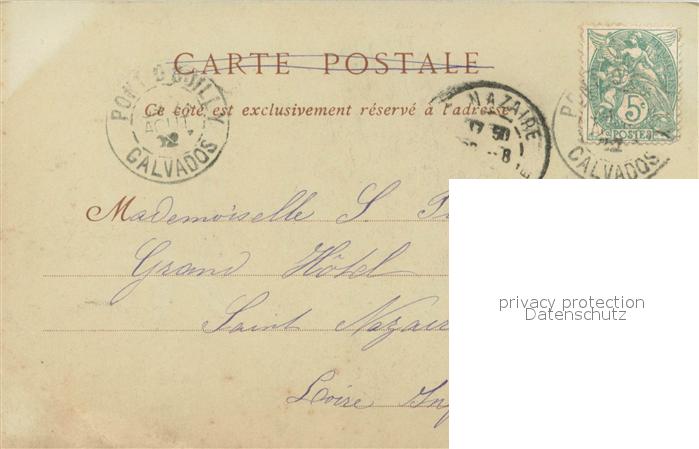 CARTE POSTALE
Ce côté est exclusivement réservé à l'adresse
PONT D'OUILLY
CALVADOS
NAZAIRE
17 50
5c
POSTES
CALVADOS
Mademoiselle S.
Grand Hôtel
Saint Nazair
Loire Inf
privacy protection
Datenschutz